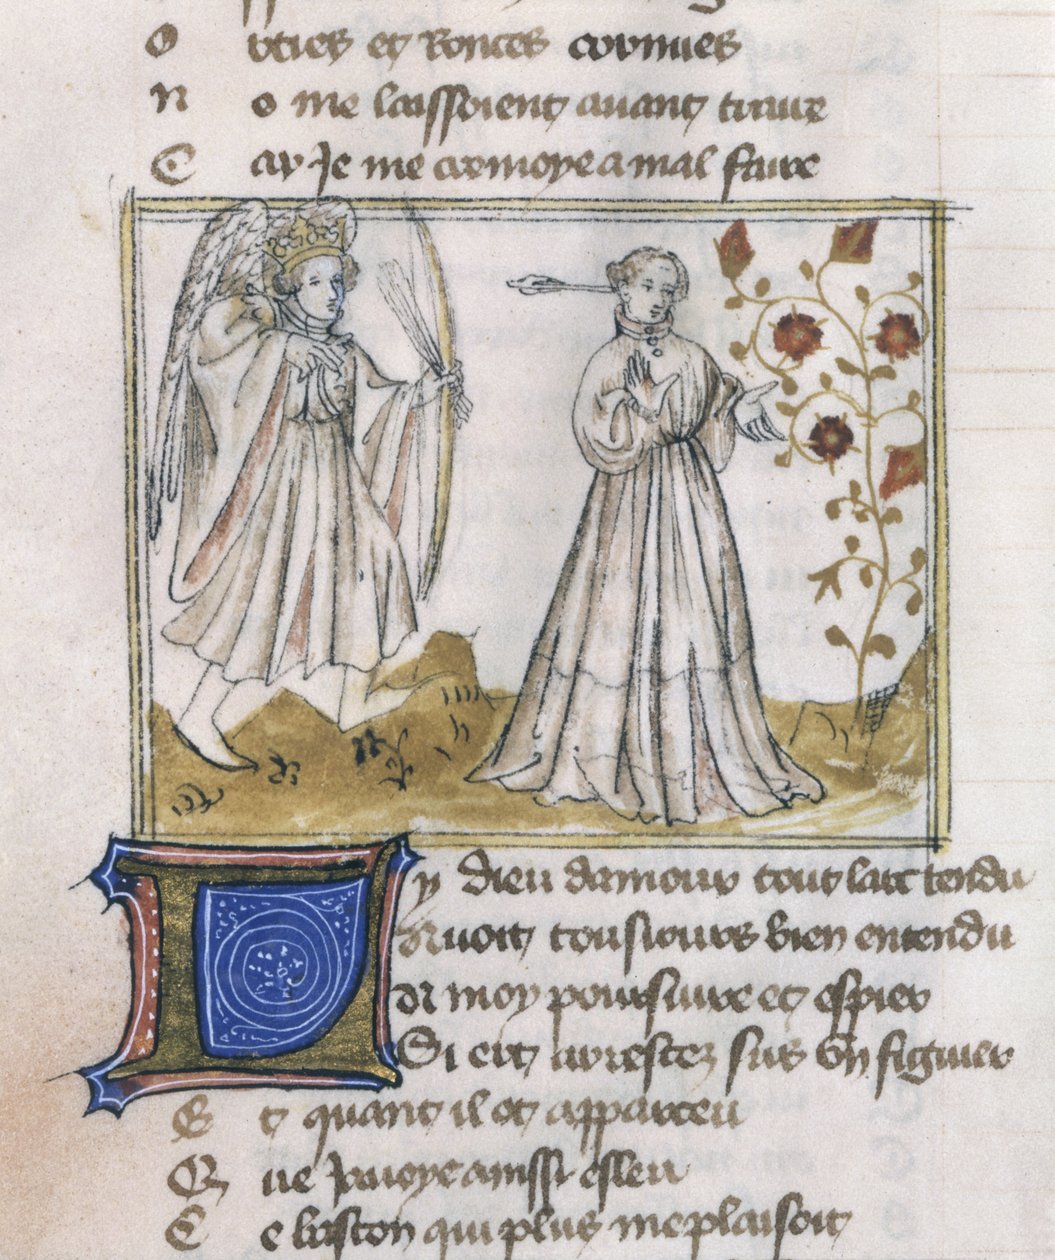 O rties et Ronces cornues
N o me laissoient auant traire
C ar Je me cremoye a mal faire
Ly dieu damour tout larc tendu
Auoit tousiours bien entendu
A moy poursiure et espier
Si ert arrestez sus vn figuier
E t quant il ot apparceu
Q ue Jauoye ainssi esleu
C e boston qui plus me plaisoit